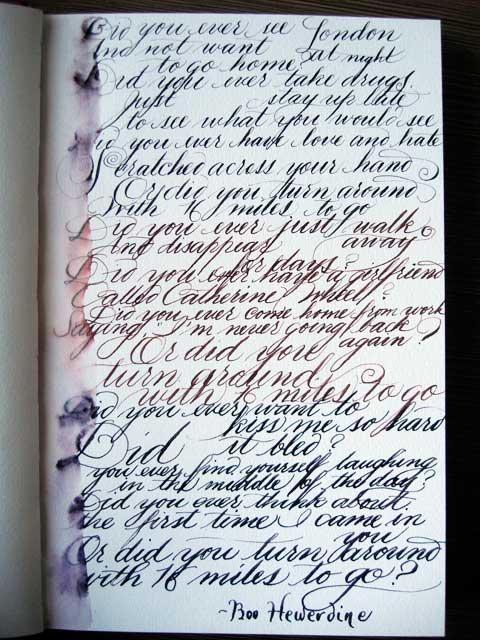 Did you ever see London
And not want at night
to go home
Did you ever take drugs
Just stay up late
to see what you would see
Did you ever have love and hate
Scratched across your hand
Or did you turn around
With 16 miles to go
Did you ever just walk
And disappear away
for days?
Did you ever have a girlfriend
Called Catherine Wheel?
Did you ever come home from work
Saying "I'm never going back
again"?
Or did you
turn around
with 16 miles to go
Did you ever want to
kiss me so hard
Did it bled?
you ever find yourself laughing
in the middle of the day?
Did you ever think about
the first time I came in
you
Or did you turn around
with 16 miles to go?
~Boo Hewerdine